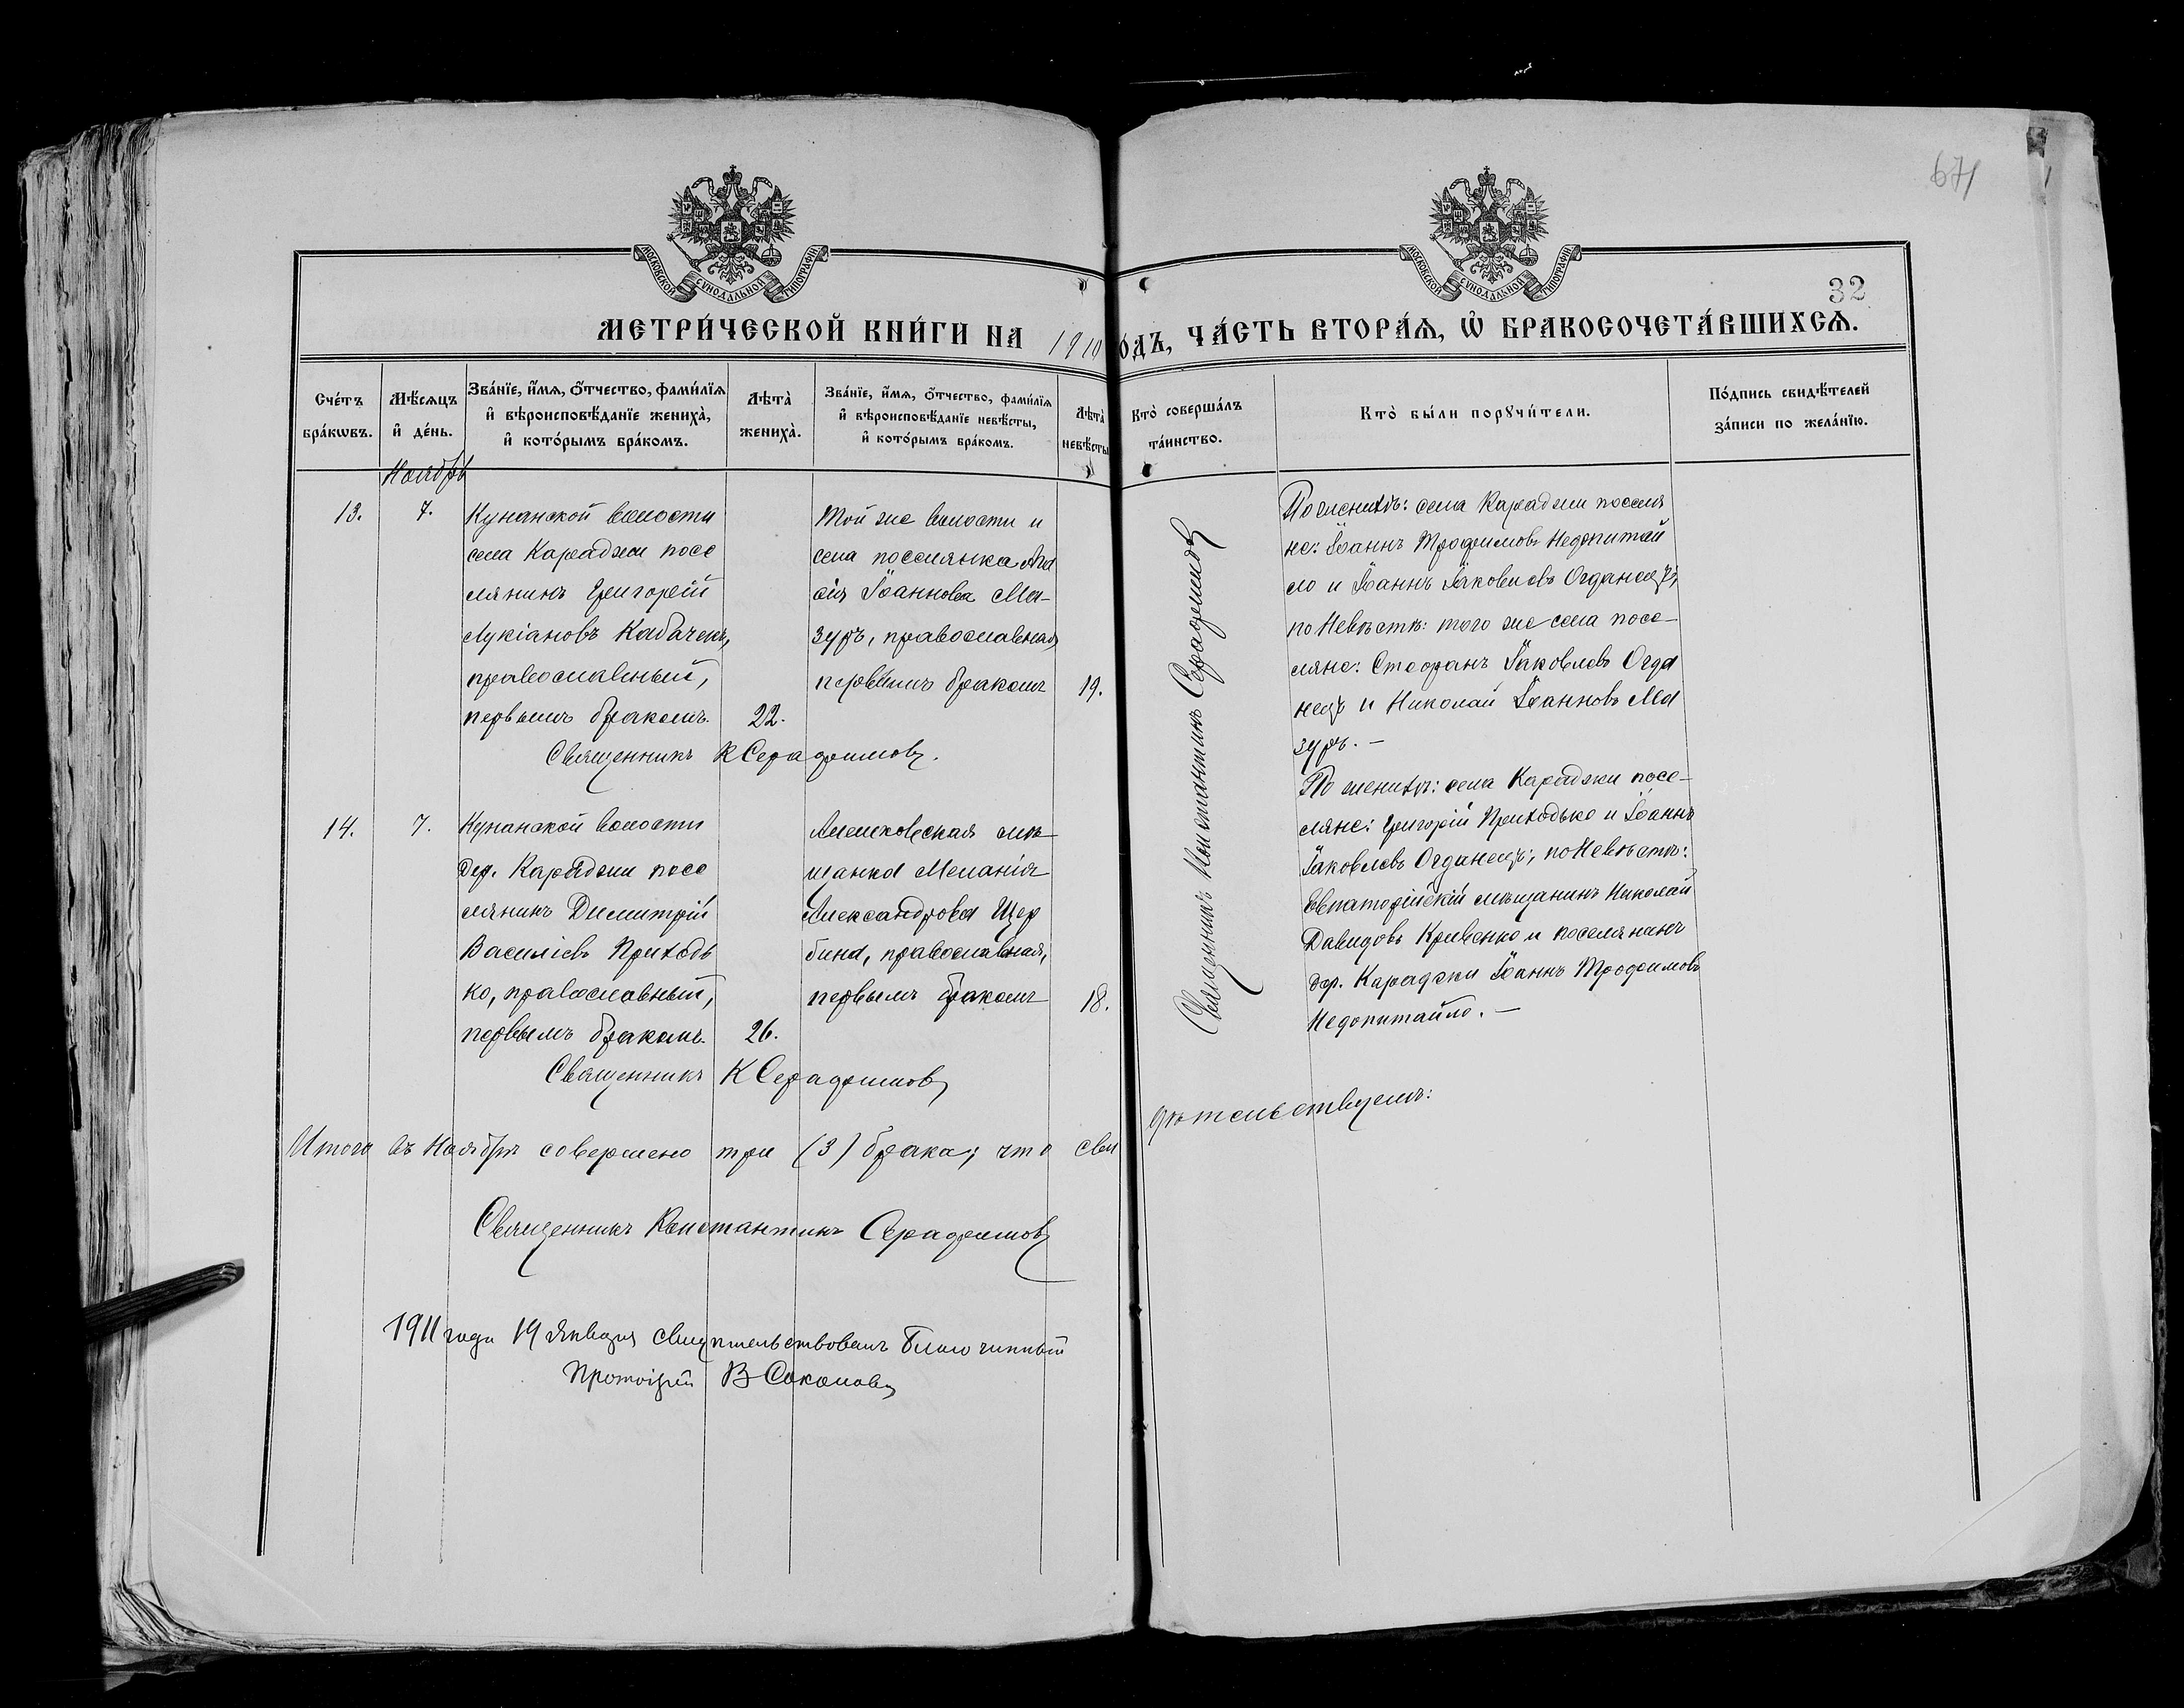 671
32
МОСКОВСКОЙ СѴНОДАЛЬНОЙ ТИПОГРАФІИ
МОСКОВСКОЙ СѴНОДАЛЬНОЙ ТИПОГРАФІИ
МЕТРИ́ЧЕСКОЙ КНИ́ГИ НА 1910 ГОДЪ, ЧА́СТЬ ВТОРА́Ѧ, Ѡ БРАКОСОЧЕТА́ВШИХСѦ.
Сче́тъ бра́кѡвъ.
Мѣ́сяцъ и де́нь.
Зва́нїе, и́мѧ, ѻ́тчество, фами́лїѧ и вѣроисповѣ́данїе жениха̀, и кото́рымъ бра́комъ.
Лѣта̀ жениха̀.
Зва́нїе, и́мѧ, ѻ́тчество, фами́лїѧ и вѣроисповѣ́данїе невѣ́сты, и кото́рымъ бра́комъ.
Лѣта̀ невѣ́сты
Кто̀ соверша́лъ та́инство.
Кто̀ бы́ли порꙋчи́тели.
По́дпись свидѣ́телей за́писи по жела́нїю.
Ноябрь
13.
7.
Кунанской волости
села Караджи посе
лянинъ Григорій
Лукіановъ Кабаченъ,
православный,
первымъ бракомъ.
22.
Той же волости и
села поселянка
Іоаннова Ма-
зуръ, православная,
первымъ бракомъ
19.
Священникъ К Серафимовъ.
Священникъ Константинъ Серафимовъ
По женихѣ: села Караджи поселя
не: Іоаннъ Трофимовъ Недопитай
ло и Іоаннъ Іаковлевъ Огданецъ;
по Невѣстѣ: того же села посе-
ляне: Стефанъ Іаковлевъ Огда
нецъ и Николай Іоанновъ Ма
зуръ. –
14.
7.
Кунанской волости
дер. Караджи посе
лянинъ Димитрій
Василіевъ Приходь
ко, православный,
первымъ бракомъ.
26.
Алешковская мѣ-
щанка Меланія
Александрова Щер
бина, православная,
первымъ бракомъ
18.
Священникъ К Серафимовъ
По женихѣ: села Караджи посе-
ляне: Григорій Приходько и Іоаннъ
Іаковлевъ Огданецъ; по Невѣстѣ:
Евпаторійскій мѣщанинъ Николай
Давидовъ Кривенко и поселянинъ
дер. Караджи Іоаннъ Трофимовъ
Недопитайло. –
Итого въ Ноябрѣ совершено три (3) брака; что сви
дѣтельствуемъ:
Священникъ Константинъ Серафимовъ
1911 года 19 Января свидѣтельствовалъ Благочинный
Протоіерей В Соколовъ